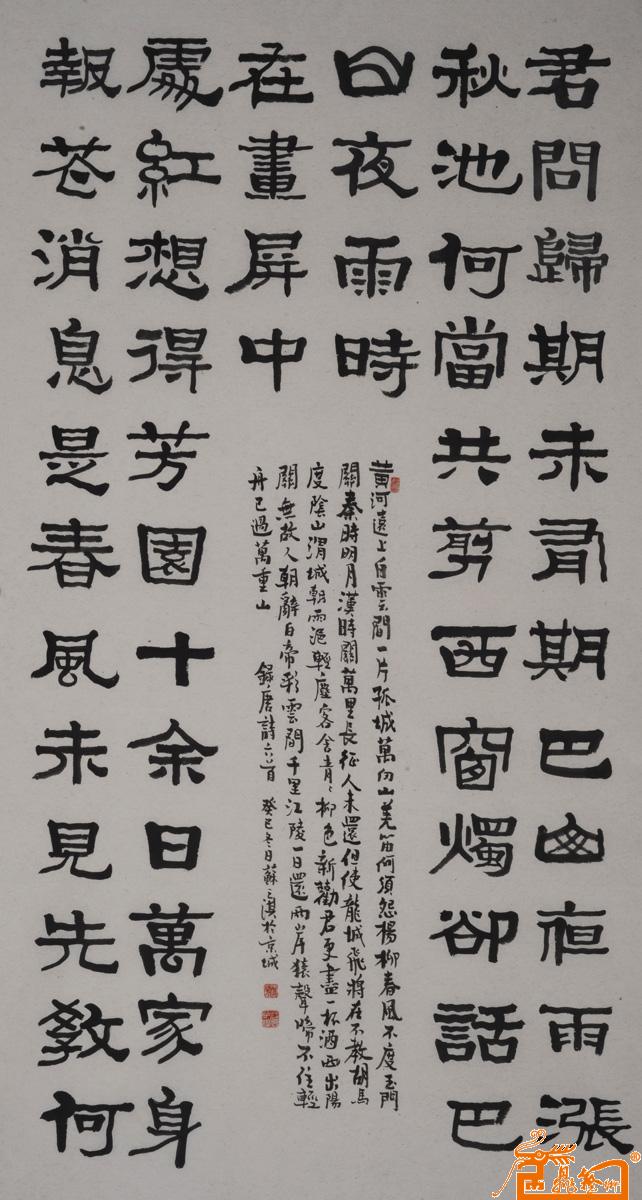 君問歸期未有期巴山夜雨漲
秋池何當共剪西窗燭卻話巴
山夜雨時
報花消息是春風未見先教何
處紅想得芳園十余日萬家身
在畫屏中
黃河遠上白雲間一片孤城萬仞山羌笛何須怨楊柳春風不度玉門
關秦時明月漢時關萬里長征人未還但使龍城飛將在不教胡馬
度陰山渭城朝雨浥輕塵客舍青〻柳色新勸君更盡一杯酒西出陽
關無故人朝辭白帝彩雲間千里江陵一日還兩岸猿聲啼不住輕
舟已過萬重山 錄唐詩六首 癸巳冬日蘇 淇於京城